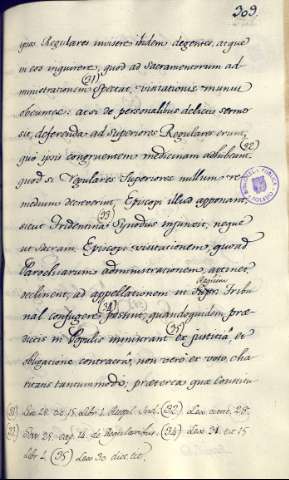 309.
ipsos Regulares invisere ibidem degentes, atque
in eos inquirere, quod ad Sacramentorum ad-
(31)
ministrationem spectat, visitationis munus
: at si de personalibus delictis sermo
sit, deferenda ad Superiores Regulares erunt,
quo ipsi congruentem medicinam adhibeant. (32)
quod si Regulares Superiores nullum re-
medium decreverint, Episcopi illud apponant,
(33)
sicut Tridentina Synodus injunxit, neque
ut Sacram Episcopi visitationem, quoad
Parochiarum administrationem, attinet,
Regium
declinent, ad appellationem et Tribu-
(34)
nal confugere possint, quandoquidem præ-
(35)
dictis in Populis ministrant ex justitia, et
obligatione contracta, non vero ex voto, cha-
ritatis tantummodo; præterea quæ constitu-
(31) Lex 28. tit. 15. Libr. 1. Recopil. Ind. (32) Lex 28.
(33) Sess. 25. cap. 14. de Regularibus. (34) Lex 31. tit. 15
Libr. 1. (35) Lex 30. dict. tit.